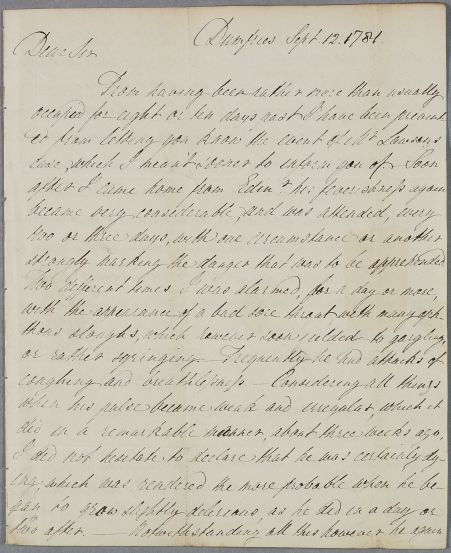 Dumfries Sept. 12. 1781.
Dear Sir
From having been rather more than usually
occupied for eight or ten days past I have been prevent
ed from letting you know the event of Mr Lawsons
case, which I meant sooner to inform you of. Soon
after I came home from Edinr his feverishness again
became very considerable, and was attended, every
two or three days, with one circumstance or another
strongly marking the danger that was to be apprehended.
Two different times I was alarmed, for a day or more,
with the appearance of a bad sore throat with many aph
thous sloughs, which however soon yielded to gargling,
or rather syringing. — Frequently he had attacks of
coughing and breathlessness. — Considering all things
when his pulse became weak and irregular, which it
did in a remarkable manner, about three weeks ago,
I did not hesitate to declare that he was certainly dy-
ing; which was rendered the more probable when he be-
gan to grow slightly delirious, as he did in a day or
two after. — Notwithstanding all this however he again